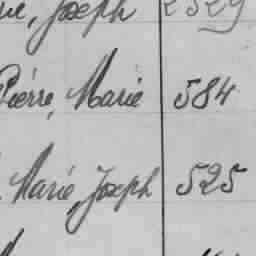 Joseph 2529
Pierre, Marie 584
Marie, Joseph 525